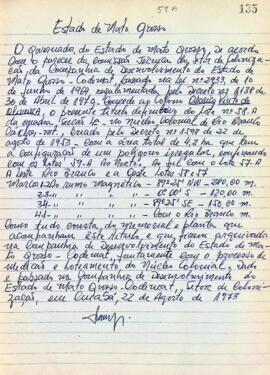 58A
135
Estado de Mato Grosso
O Governador do Estado de Mato Grosso, de acordo
com o parecer da comissão técnica do setor de coloniza-
ção da Companhia de Desenvolvimento do Estado de
Mato Grosso - Codemat, baseado na lei nº 2933, de 10
de junho de 1969, regulamentada pelo Decreto nº 1138 de
30 de Abril de 1970. Concede ao colono
Oliveira, o presente título definitivo do lote 58.A
da quadra Secção 12 do Núcleo Colonial de Rio Branco
Cáceres-MT, criado pelo Decreto nº 1598 de 22
de agosto de 1953 - com a área total de 4,2 ha que tem
a configuração de um polígono irregular, confinando
com os lotes 59.A Ao Norte Ao sul com o lote 57.A
A leste Rio Branco e a Oeste lote 58.
Marco rumo magnético - 89º25' NW - 280,00 m.
23 = " " " - 0º00' S - 120,00 m.
34 = " " " - 89º25' SE - 150,00 m.
41 = " " " - Com o Rio Branco m.
Como tudo consta do memorial e planta que
acompanham este título e que ficam arquivados
na Companhia de Desenvolvimento do Estado de Ma-
to Grosso - Codemat, juntamente com o processo de
medição e loteamento do Núcleo Colonial, dado
e passado na Companhia de Desenvolvimento do
Estado de Mato Grosso - Codemat, Setor de Coloni-
zação, em Cuiabá, 22 de Agosto de 1973